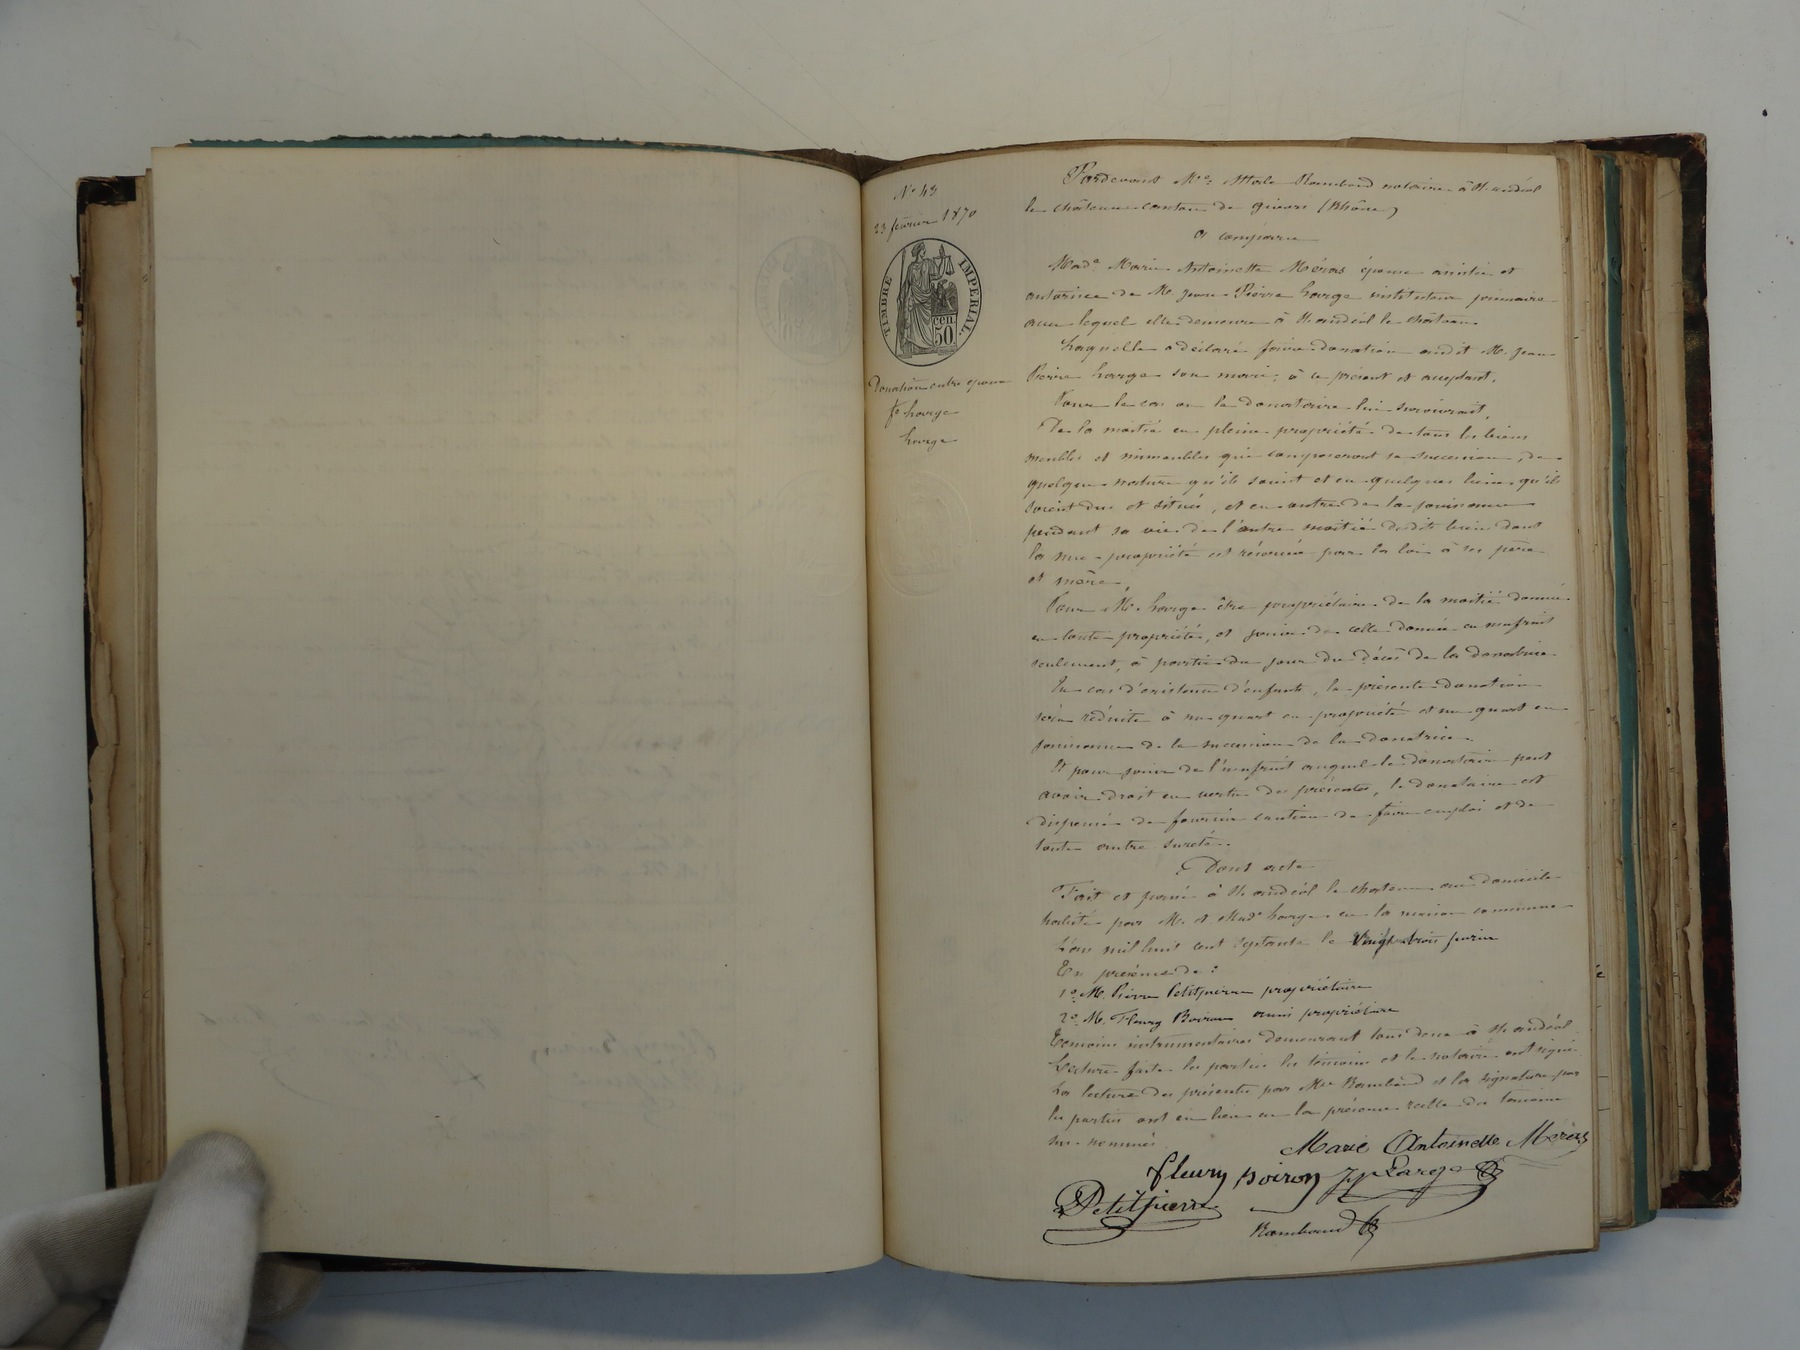 N° 43
23 février 1870
TIMBRE IMPERIAL
cen.
50
Donation entre époux
fe Large
Large
Pardevant Me Rambaud notaire à St andéol
le château canton de givors (Rhône)
a comparu
Made Marie Antoinette Méras épouse assistée et
autorisée de M. Jean Pierre Large instituteur primaire
avec lequel elle demeure à St andéol le château
Laquelle a déclaré faire donation audit M. Jean
Pierre Large son mari, à ce présent et acceptant,
Pour le cas ou le donataire lui survivrait,
De la moitié en pleine propriété de tous les biens
meubles et immeubles qui composeront sa succession, de
quelque nature qu'ils soient et en quelques lieux qu'ils
soient dus et situés, et en outre de la jouissance
pendant sa vie de l'autre moitié desdits biens dont
la nue-propriété est réservée par la loi à ses père
et mère,
Pour M. Large être propriétaire de la moitié donnée
en toute propriété, et jouir de celle donnée en usufruit
seulement, à partir du jour du décès de la donatrice
En cas d'existence d'enfants, la présente donation
sera réduite à un quart en propriété et un quart en
jouissance de la succession de la donatrice.
Et pour jouir de l'usufruit auquel le donataire peut
avoir droit en vertu des présentes, le donataire est
dispensé de fournir caution de faire emploi et de
toute autre sureté.
Dont acte
Fait et passé à St andéol le chateau au domicile
habité par M. et Made Large en la maison commune
L'an mil huit cent septante le vingt trois février
En présence de :
1° M. Pierre Petitpierre propriétaire
2° M. Fleury Boiron aussi propriétaire
Témoins instrumentaires demeurant tous deux à St andéol
Lecture faite les parties les témoins et le notaire ont signé
La lecture des présentes par Me Rambaud et la signature par
les parties ont eu lieu en la présence réelle des témoins
sus-nommés
Marie Antoinette Méras
fleury boiron JP Large
Petitpierre
Rambaud